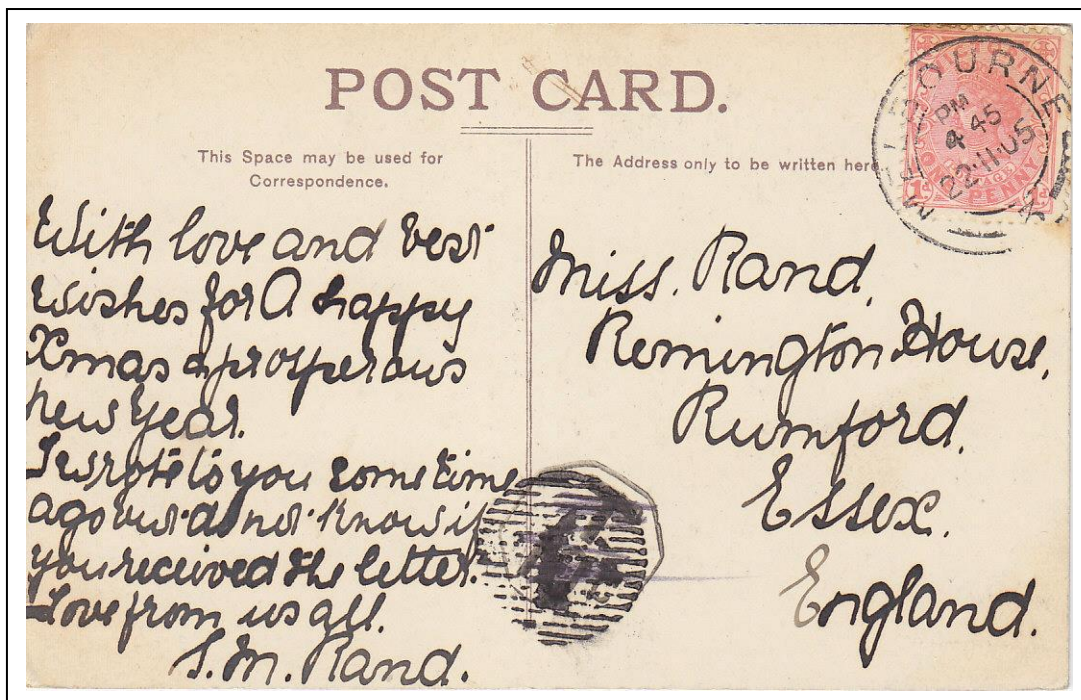 POST CARD.
This Space may be used for
Correspondence.
The Address only to be written here.
MELBOURNE
PM
4 45
22·11·05
ONE PENNY
1d 1d
With love and best
wishes for A happy
Xmas & prosperous
new year.
I wrote to you some time
ago but do not know if
you received the letter.
Love from us all.
S.M. Rand.
Miss. Rand,
Remington House,
Rumford.
Essex.
England.